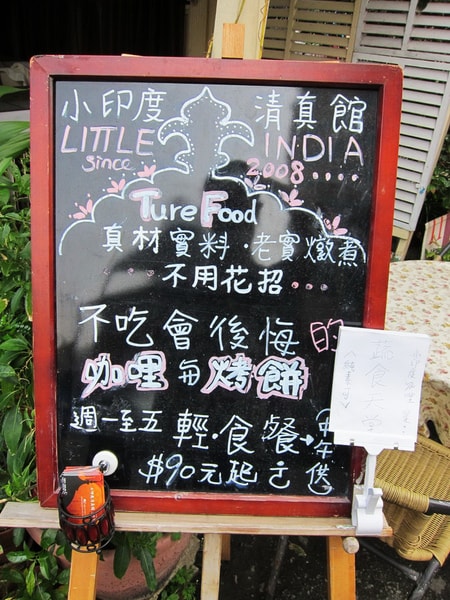 小印度 清真館
LITTLE INDIA
Since 2008....
Ture Food
真材實料·老實燉煮
...不用花招...
不吃會後悔的
咖哩每烤餅
週一至五 輕·食餐→
$90元起
蔬食